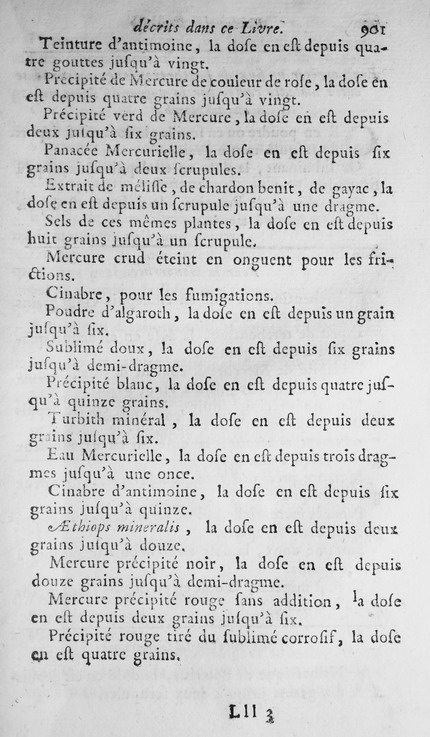 décrits dans ce Livre. 901
Teinture d'antimoine, la dose en est depuis qua-
tre gouttes jusqu'à vingt.
Précipité de Mercure de couleur de rose, la dose en
est depuis quatre grains jusqu'à vingt.
Précipité verd de Mercure, la dose en est depuis
deux jusqu'à six grains.
Panacée Mercurielle, la dose en est depuis six
grains jusqu'à deux scrupules.
Extrait de mélisse, de chardon benit, de gayac, la
dose en est depuis un scrupule jusqu'à une dragme.
Sels de ces mêmes plantes, la dose en est depuis
huit grains jusqu'à un scrupule.
Mercure crud éteint en onguent pour les fri-
ctions.
Cinabre, pour les fumigations.
Poudre d'algaroth, la dose en est depuis un grain
jusqu'à six.
Sublimé doux, la dose en est depuis six grains
jusqu'à demi-dragme.
Précipité blanc, la dose en est depuis quatre jus-
qu'à quinze grains.
Turbith minéral, la dose en est depuis deux
grains jusqu'à six.
Eau Mercurielle, la dose en est depuis trois drag-
mes jusqu'à une once.
Cinabre d'antimoine, la dose en est depuis six
grains jusqu'à quinze.
Æthiops mineralis, la dose en est depuis deux
grains jusqu'à douze.
Mercure précipité noir, la dose en est depuis
douze grains jusqu'à demi-dragme.
Mercure précipité rouge sans addition, la dose
en est depuis deux grains jusqu'à six.
Précipité rouge tiré du sublimé corrosif, la dose
en est quatre grains.
Lll 3